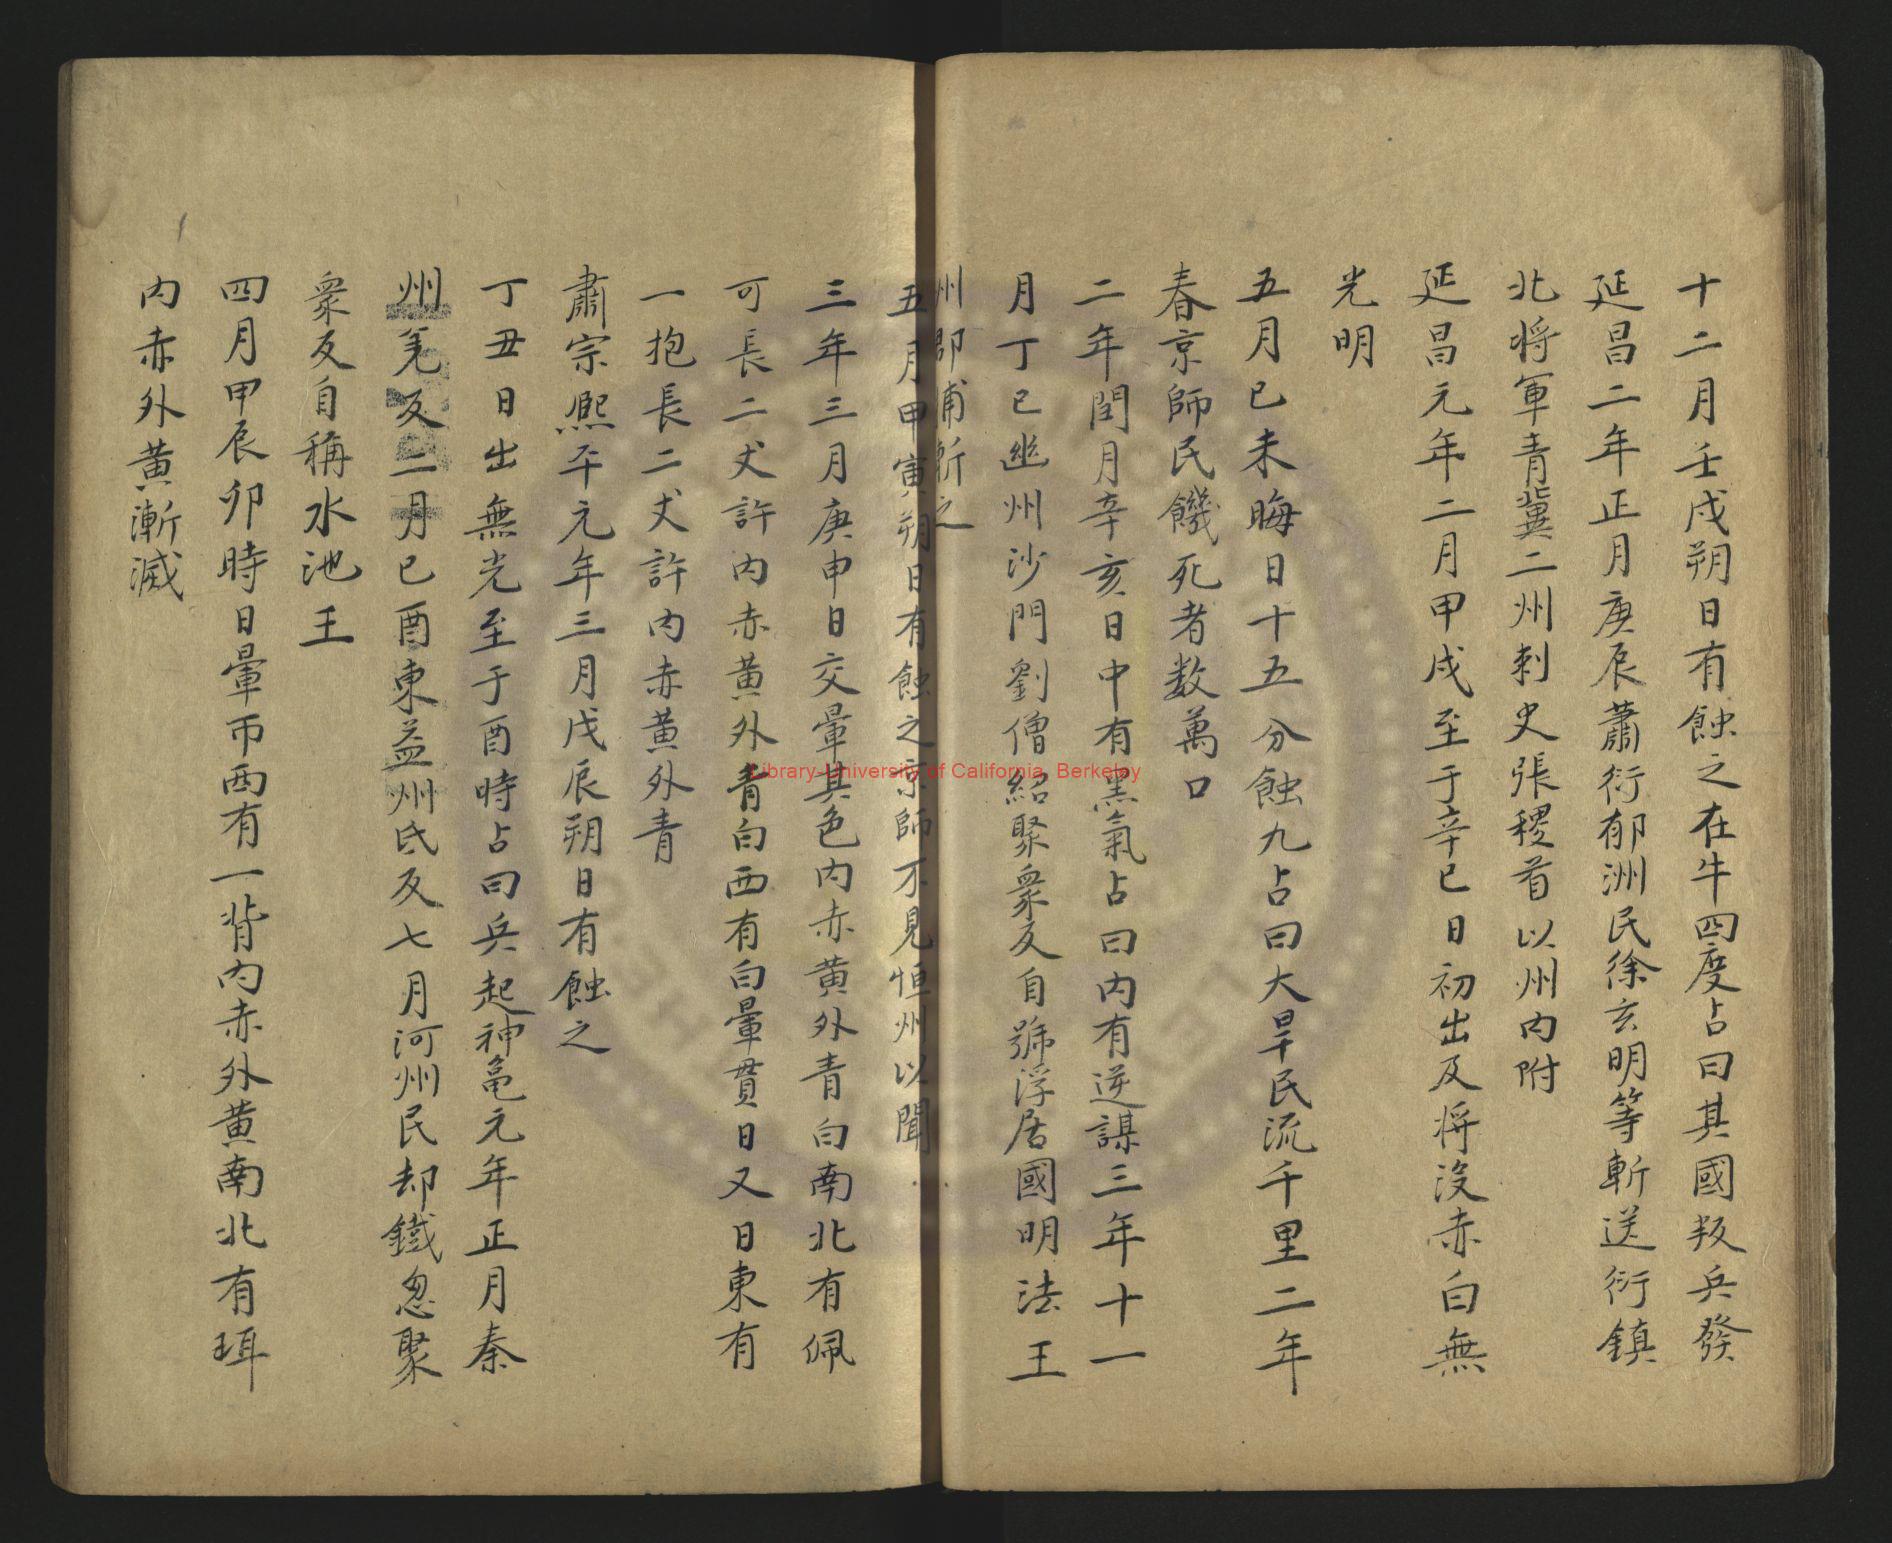 十二月壬戌朔日有蝕之在牛四度占曰其國叛兵發
延昌二年正月庚辰蕭衍郁洲民徐玄明等斬送衍鎮
北将軍青冀二州刺史張稷首以州内附
延昌元年二月甲戌至于辛巳日初出及将沒赤白無
光明
五月已未晦日十五分蝕九占曰大旱民流千里二年
春京師民饑死者数萬口
二年閏月辛亥日中有黑氣占曰内有逆謀三年十一
月丁巳幽州沙門劉僧紹聚衆反自號浮居國明法王
州郡捕斬之
五月甲寅朔日有蝕之京師不見恒州以聞
三年三月庚申日交暈其色内赤黄外青白南北有佩
可長二丈許内赤黄外青白西有白暈貫日又日東有
一抱長二丈許内赤黄外青
肅宗熙平元年三月戊辰朔日有蝕之
丁丑日出無光至于酉時占曰兵起神龜元年正月秦
州羌反二月已酉東益州氐反七月河州民却鐵忽聚
衆反自稱水池王
四月甲辰卯時日暈帀西有一背内赤外黄南北有珥
内赤外黄漸滅
Library-University of California, Berkeley